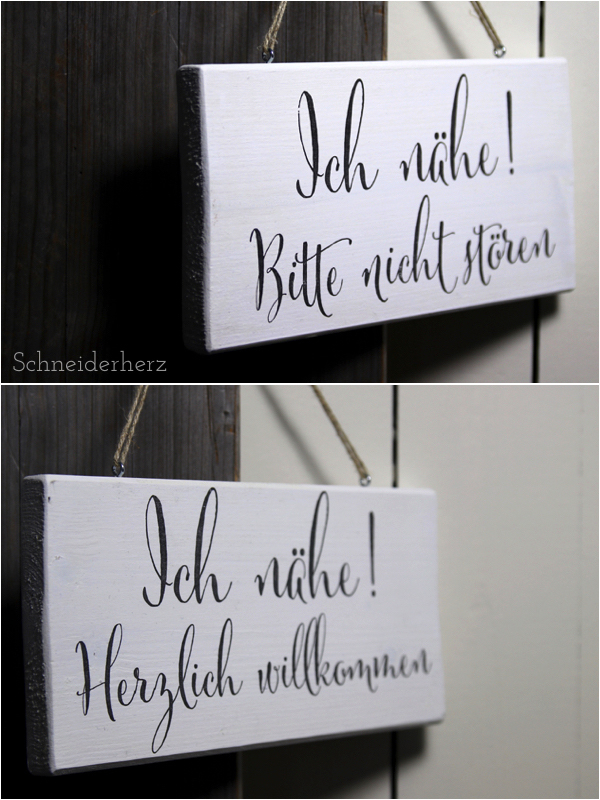 Ich nähe!
Bitte nicht stören
Schneiderherz
Ich nähe!
Herzlich willkommen